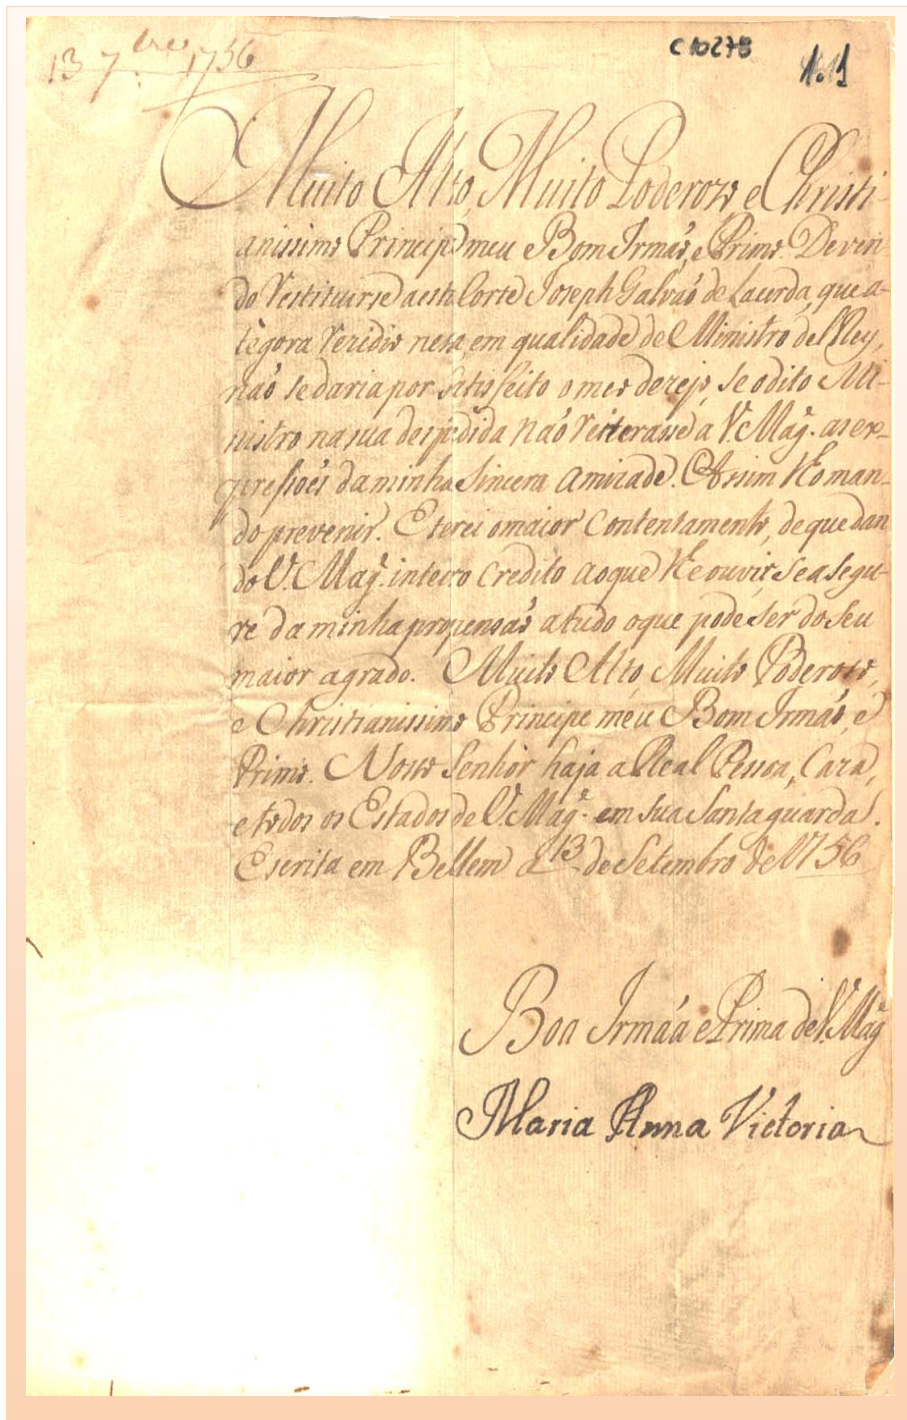 13 7.bre 1756
C 10275
1.11
Muito Alto, Muito Poderozo e Christi-
anissimo Principe meu e Bom Irmaõ, e Primo. Deven-
do restituirse a esta Corte Joseph Galvaõ de Lacerda, que a-
tègora rezidio nesta, em qualidade de Ministro del Rey,
naõ se daria por satisfeito o meo dezejo, se o dito Mi-
nistro na sua despedida naõ reiterasse a V. Mag.e as ex-
pressoẽs da minha sincera amizade. Assim lho man-
do prevenir. E terei o maior contentamento, de que dan
do V. Mag.e inteiro credito ao que lhe ouvir, se asegu-
re da minha propensaõ a tudo o que pode ser do seu
maior agrado. Muito Alto, Muito Poderozo,
e Christianissimo Principe meu Bom Irmaõ, e
Primo. Nosso Senhor haja a Real Pessoa, Cara,
e todos os Estados de V. Mag.e em sua Santa guarda.
Escrita em Bellem a 13 de Setembro de 1756
Boa Irmáa e Prima de V. Mag.e
Maria Anna Victoria